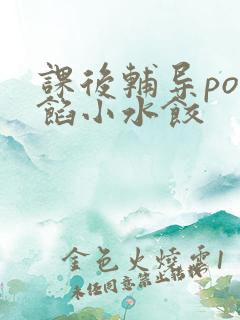 課後輔导po
餡小水餃
金色火燒雲1
未经同意禁止转载